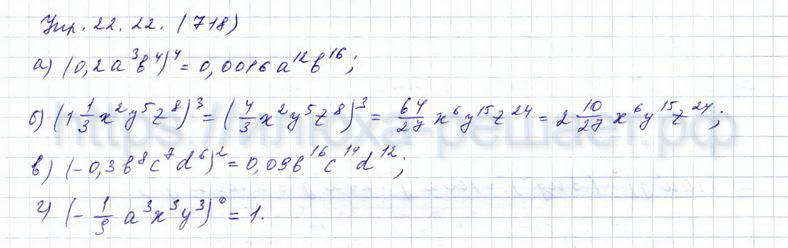 Упр. 22. 22. (718)
а) (0,2a³b⁴)⁴ = 0,0016a¹²b¹⁶;
б) (1 1/3 x²y⁵z⁸)³ = (4/3 x²y⁵z⁸)³ = 64/27 x⁶y¹⁵z²⁴ = 2 10/27 x⁶y¹⁵z²⁴;
в) (-0,3b⁸c⁷d⁶)² = 0,09b¹⁶c¹⁴d¹²;
г) (- 1/9 a³x³y³)⁰ = 1.